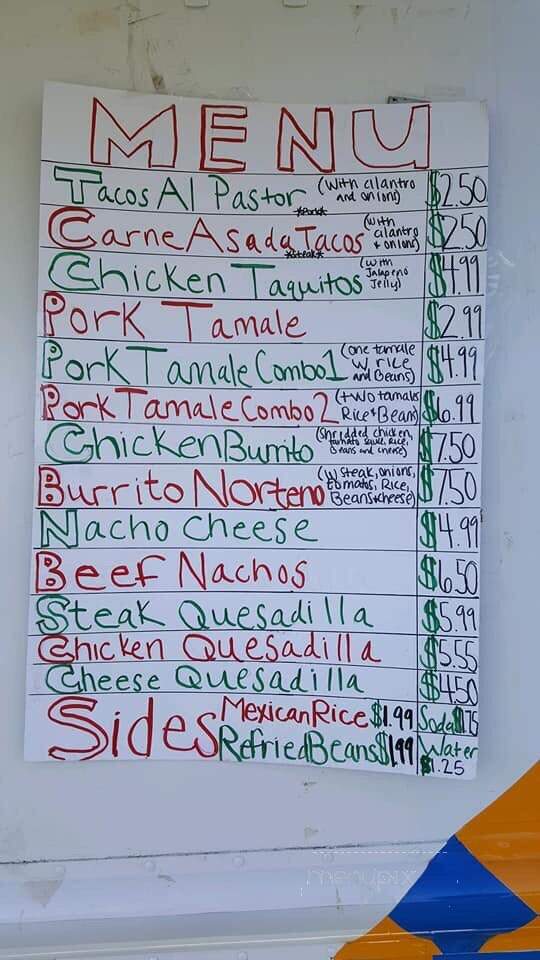 MENU
Tacos Al Pastor (with cilantro and onions) $2.50
*Pork*
Carne Asada Tacos (with cilantro + onions) $2.50
*steak*
Chicken Taquitos (with Jalapeno Jelly) $4.99
Pork Tamale $2.99
Pork Tamale Combo 1 (one tamale w rice and Beans) $4.99
Pork Tamale Combo 2 (two tamals Rice + Beans) $6.99
Chicken Burrito (shredded chicken, tomato sauce, Rice, Beans and cheese) $7.50
Burrito Norteno (w steak, onions, tomatos, Rice, Beans + cheese) $7.50
Nacho Cheese $4.99
Beef Nachos $6.50
Steak Quesadilla $5.99
Chicken Quesadilla $5.55
Cheese Quesadilla $4.50
Sides Mexican Rice $1.99 Soda $1.75
Refried Beans $1.99 Water $1.25
menupix